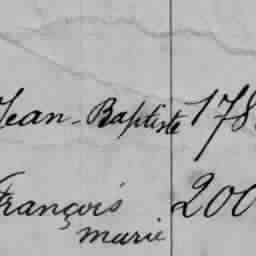 Jean-Baptiste 178
François 200
marie